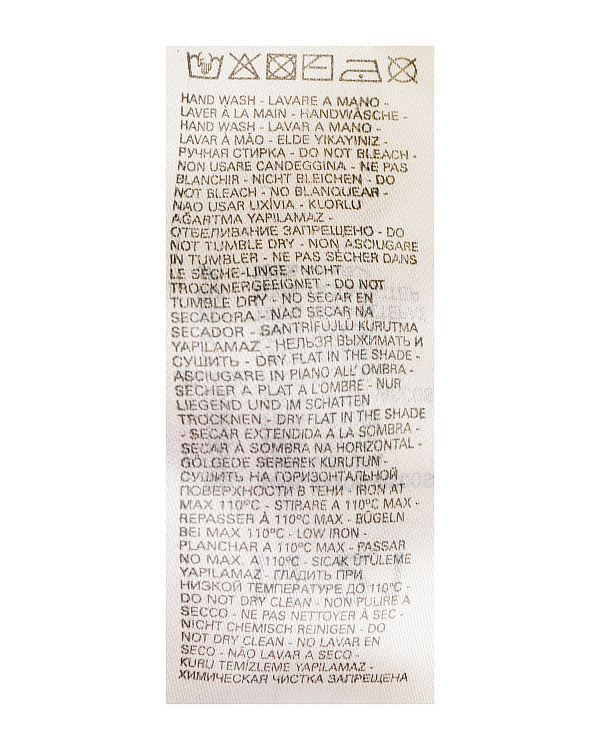 HAND WASH - LAVARE A MANO -
LAVER À LA MAIN - HANDWÄSCHE -
HAND WASH - LAVAR A MANO -
LAVAR À MÃO - ELDE YIKAYINIZ -
РУЧНАЯ СТИРКА - DO NOT BLEACH -
NON USARE CANDEGGINA - NE PAS
BLANCHIR - NICHT BLEICHEN - DO
NOT BLEACH - NO BLANQUEAR -
NAO USAR LIXÍVIA - KLORLU
AĞARTMA YAPILAMAZ -
ОТБЕЛИВАНИЕ ЗАПРЕЩЕНО - DO
NOT TUMBLE DRY - NON ASCIUGARE
IN TUMBLER - NE PAS SÉCHER DANS
LE SÈCHE-LINGE - NICHT
TROCKNERGEEIGNET - DO NOT
TUMBLE DRY - NO SECAR EN
SECADORA - NAO SECAR NA
SECADOR - SANTRİFUJLU KURUTMA
YAPILAMAZ - НЕЛЬЗЯ ВЫЖИМАТЬ И
СУШИТЬ - DRY FLAT IN THE SHADE -
ASCIUGARE IN PIANO ALL' OMBRA -
SÉCHER A PLAT A L'OMBRE - NUR
LIEGEND UND IM SCHATTEN
TROCKNEN - DRY FLAT IN THE SHADE
- SECAR EXTENDIDA A LA SOMBRA -
SECAR À SOMBRA NA HORIZONTAL -
GÖLGEDE SEREREK KURUTUN -
СУШИТЬ НА ГОРИЗОНТАЛЬНОЙ
ПОВЕРХНОСТИ В ТЕНИ - IRON AT
MAX 110ºC - STIRARE A 110ºC MAX -
REPASSER À 110ºC MAX - BÜGELN
BEI MAX 110ºC - LOW IRON -
PLANCHAR A 110ºC MAX - PASSAR
NO MAX. A 110ºC - SICAK ÜTÜLEME
YAPILAMAZ - ГЛАДИТЬ ПРИ
НИЗКОЙ ТЕМПЕРАТУРЕ ДО 110ºC -
DO NOT DRY CLEAN - NON PULIRE A
SECCO - NE PAS NETTOYER À SEC -
NICHT CHEMISCH REINIGEN - DO
NOT DRY CLEAN - NO LAVAR EN
SECO - NÃO LAVAR A SECO -
KURU TEMİZLEME YAPILAMAZ -
ХИМИЧЕСКАЯ ЧИСТКА ЗАПРЕЩЕНА